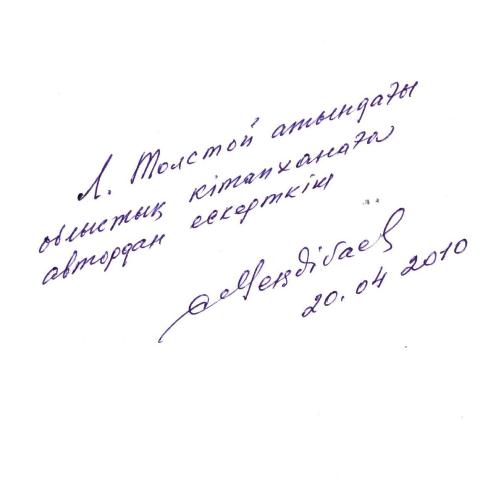 Л. Толстой атындағы
облыстық кітапханаға
автордан ескерткіш
Меңдібаев
20.04 2010